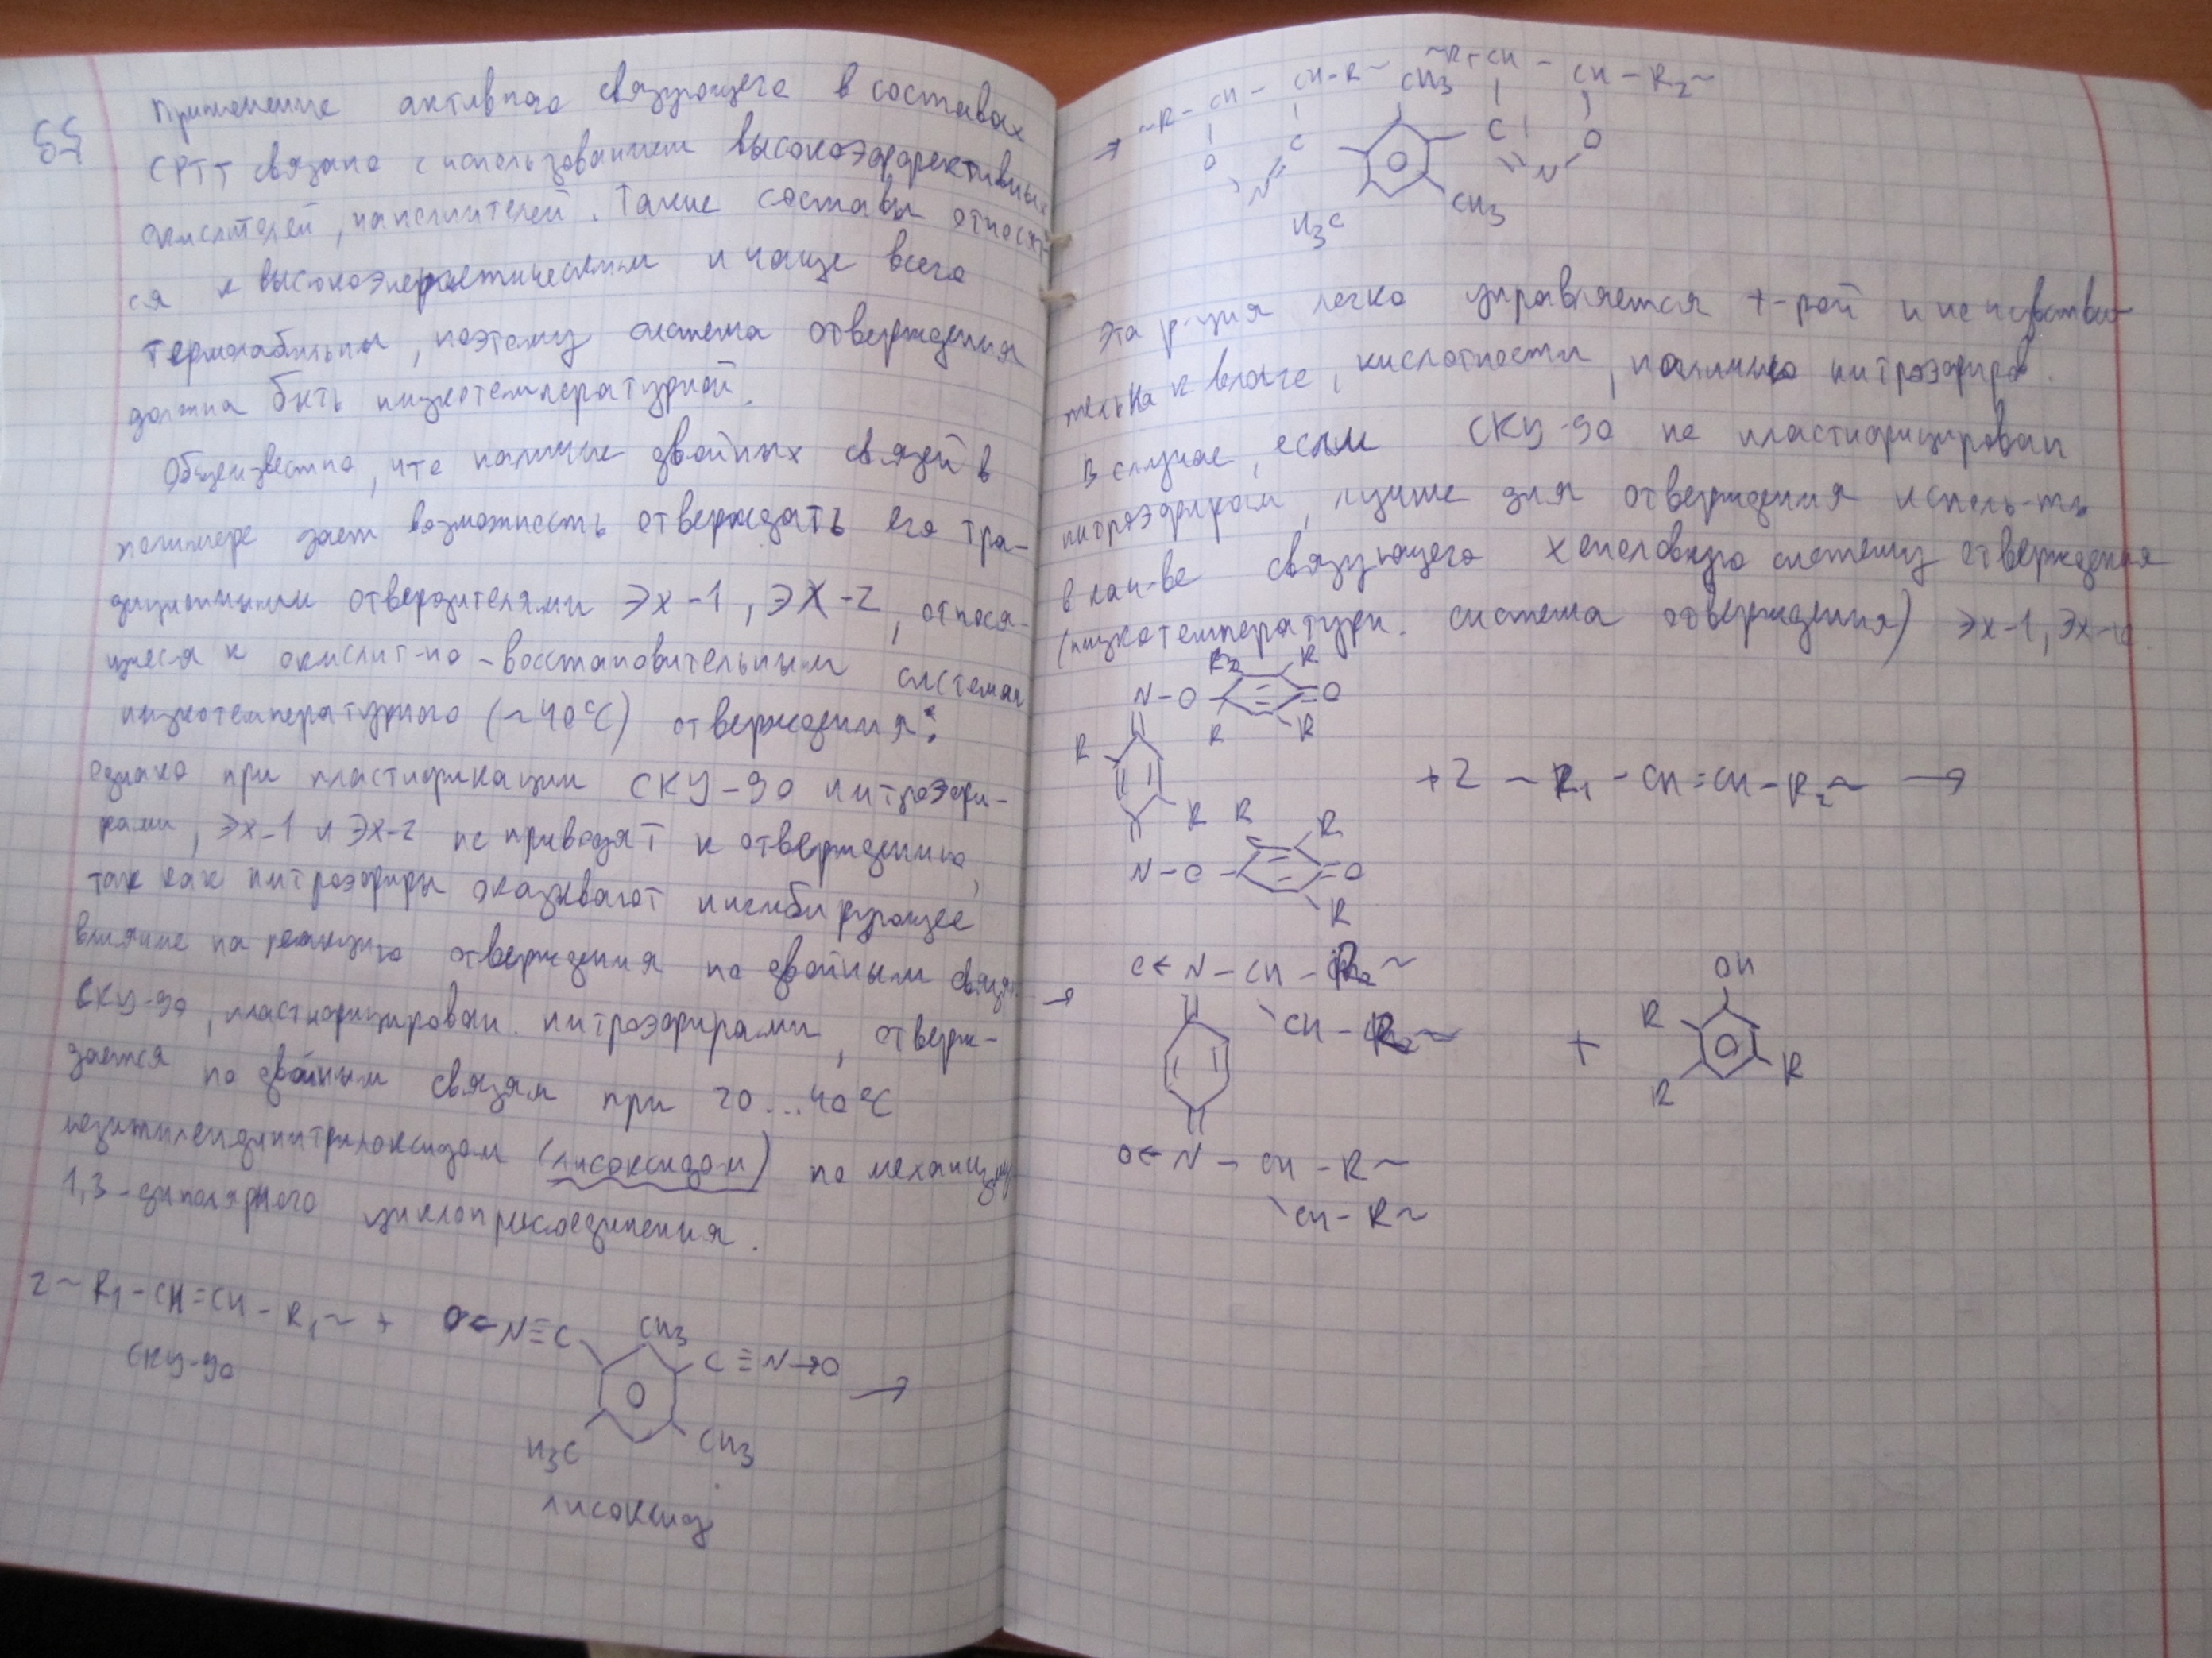 55
Применение активного связующего в составах
СРТТ связано с использованием высокоэффективных
окислителей, наполнителей. Такие составы относят-
ся к высокоэнергетическим и чаще всего
термолабильны, поэтому система отверждения
должна быть низкотемпературной.
Общеизвестно, что наличие двойных связей в
полимере дает возможность отверждать его тра-
диционными отвердителями ЭХ-1, ЭХ-2, относя-
щиеся к окислит-но-восстановительным системам
низкотемпературного (~40°С) отверждения;
однако при пластификации СКУ-90 нитроэфи-
рами, ЭХ-1 и ЭХ-2 не приводят к отверждению,
так как нитроэфиры оказывают ингибирующее
влияние на реакцию отверждения по двойным связям
СКУ-90, пластифицирован. нитроэфирами, отверж-
дается по двойным связям при 20...40°С
мезитилендинитрилоксидом (лисоксидом) по механизму
1,3-диполярного циклоприсоединения.
2 ~ R₁ - CH = CH - R₁ ~ + O ← N ≡ C
CH₃
C ≡ N → O →
СКУ-90
H₃C
CH₃
лисоксид
~R - CH - CH - R ~
CH₃
~R₁ CH - CH - R₂ ~
→ O N C
C N O
H₃C
CH₃
Эта р-ция легко управляется t-рой и не чувстви-
тельна к влаге, кислотности, наличию нитроэфиров.
В случае, если СКУ-90 не пластифицирован
нитроэфиром, лучше для отверждения исполь-ть
в кач-ве связующего хиноловую систему отверждения
(низкотемператури. система отверждения) ЭХ-1, ЭХ-2.
R R
N - O = O
R R
R
+ 2 ~ R₁ - CH = CH - R₂ ~ →
R R R
N - O = O
R
→ O ← N - CH - R₂ ~
CH - R₂ ~
+
OH
R
R
R
O ← N - CH - R ~
CH - R ~